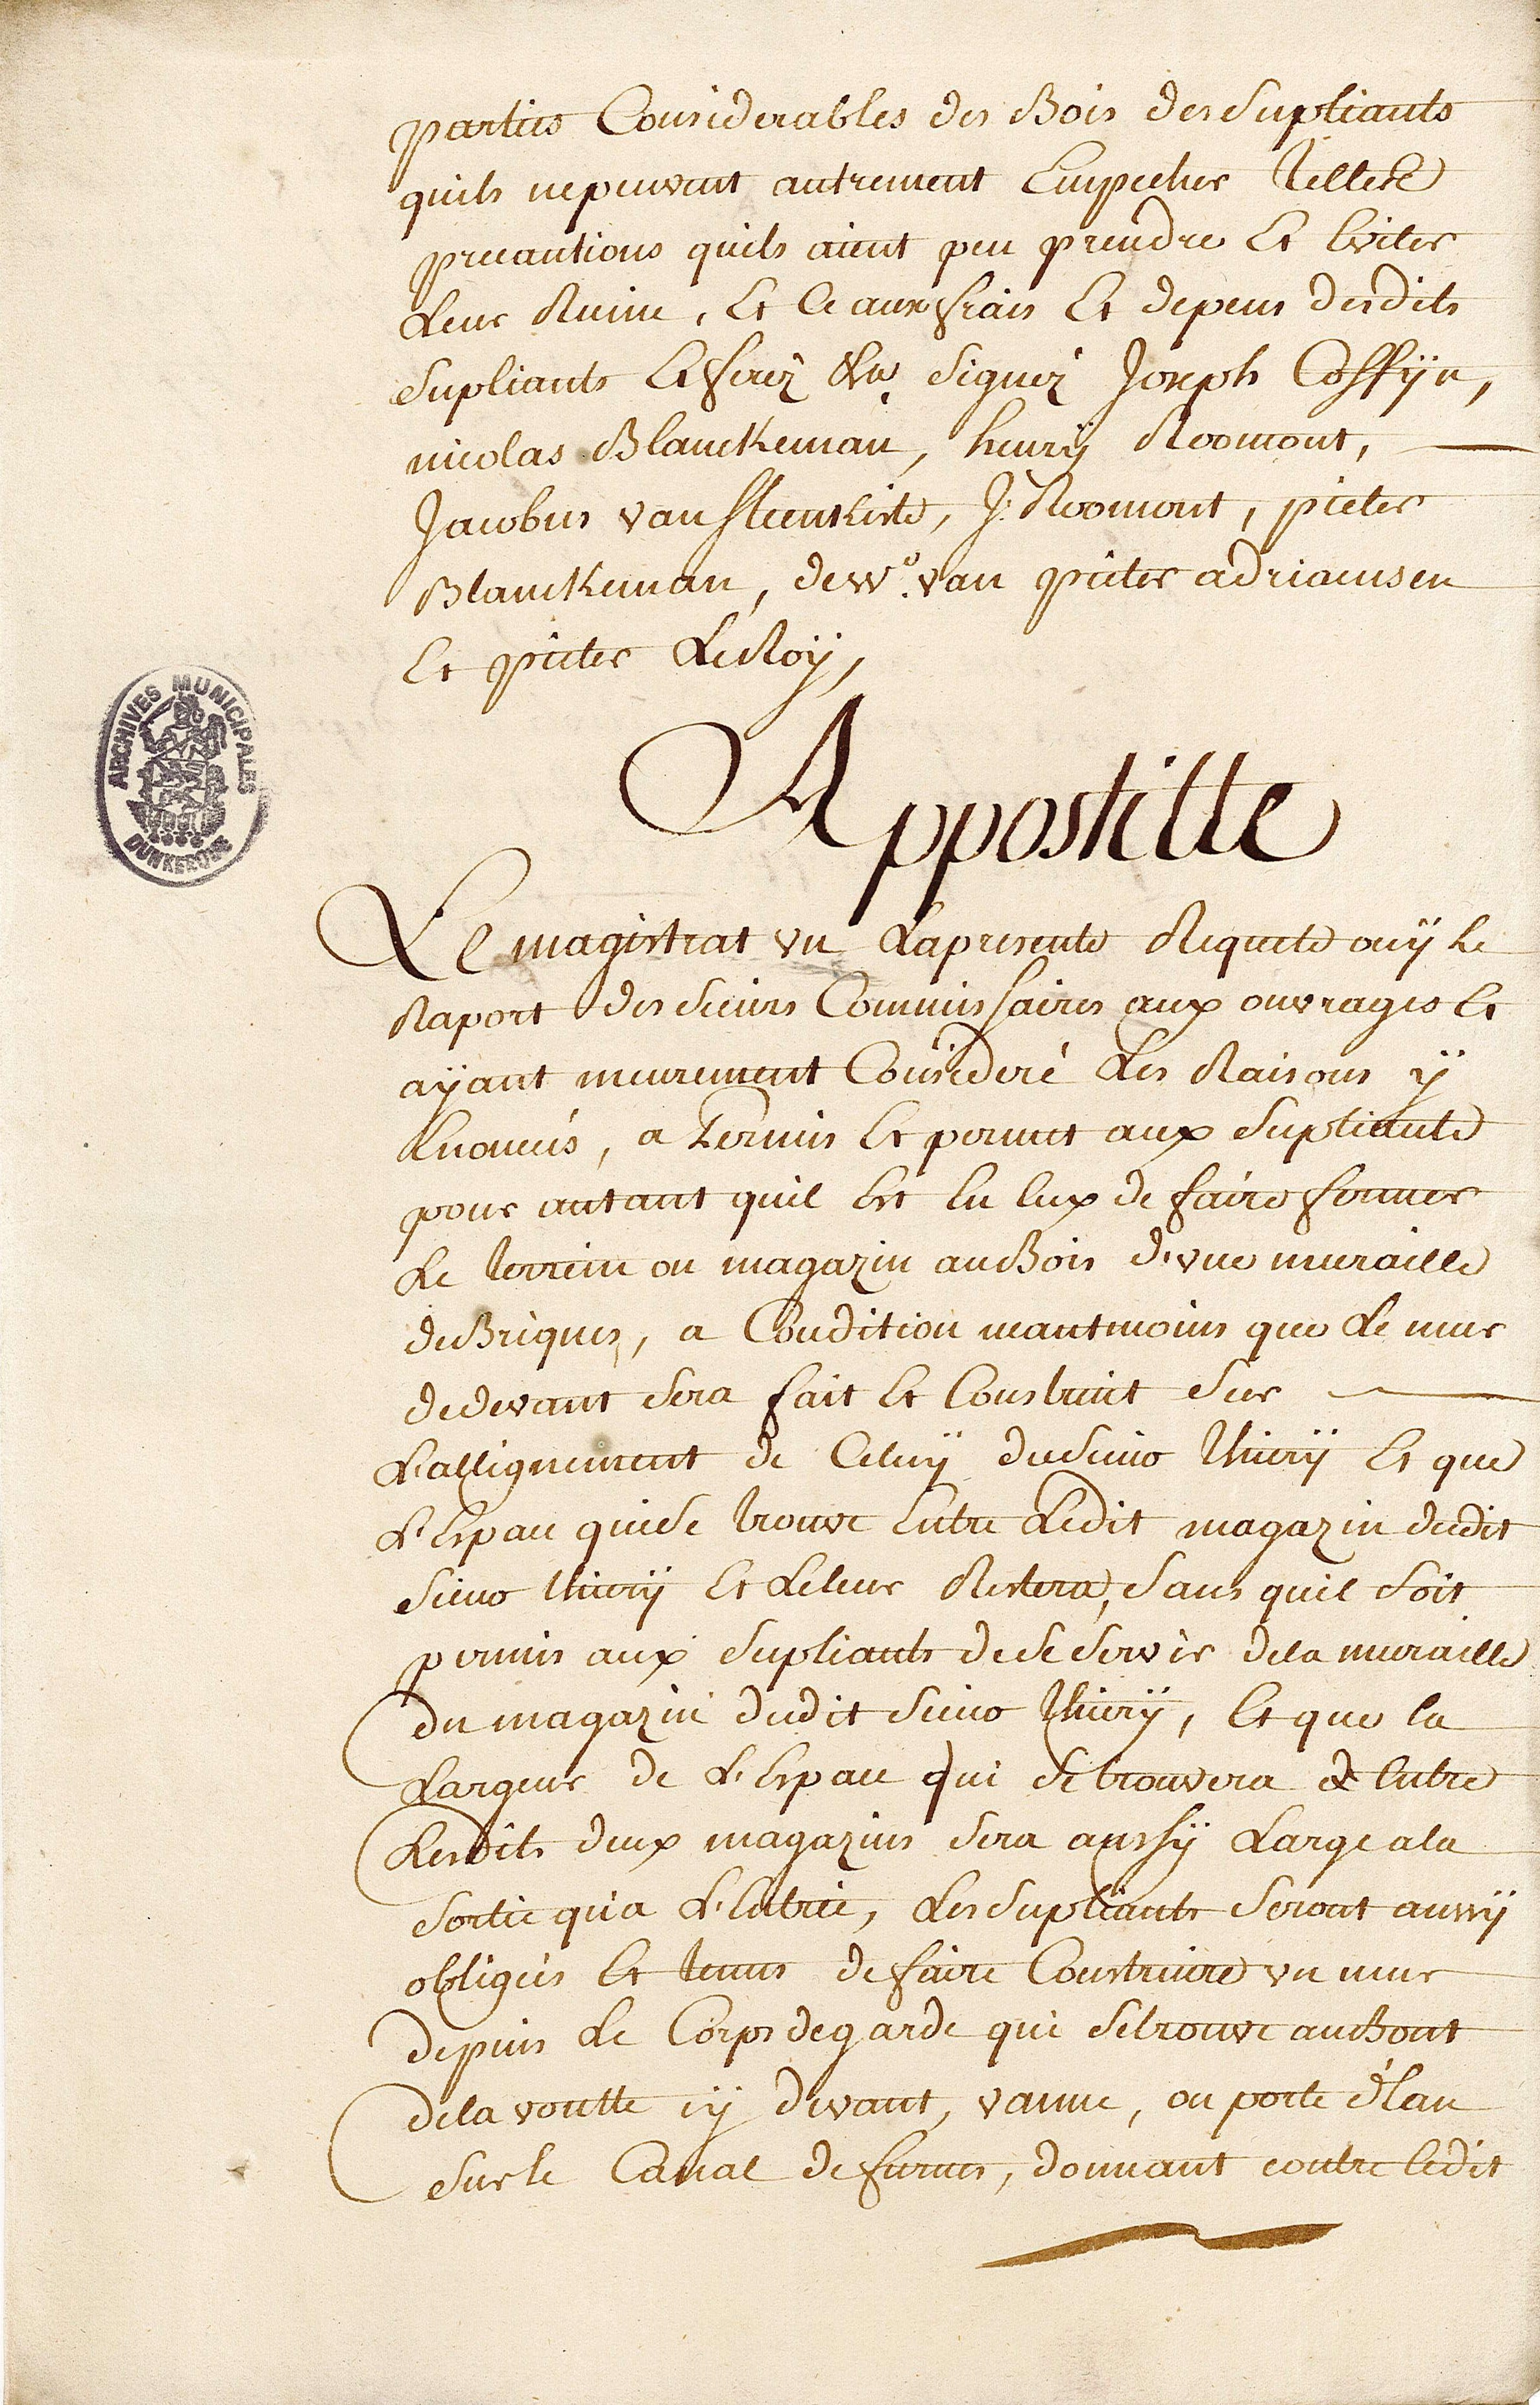 parties Considerables des Bois des Supliants
quils nepeuvent autrement Empecher telles
precautions quils aient peu prendre Et Eviter
Leur Ruine, Et Ce aux frais Et depens desdits
Supliants Et ferez &ca. Signez Joseph Coffÿn,
nicolas Blanckeman, henrÿ Roomont,
Jacobus van steenkiste, J: Roomont, pieter
Blanckeman, de we. van pieter adriaensen
Et pieter LeRoÿ,
Appostille
Le magistrat vu Lapresente Requete ouÿ Le
Raport des Sieurs Commissaires aux ouvrages Et
aÿant meurement Consideré Les Raisons ÿ
Enoncés, a Permis Et permet aux Supliants
pour autant quil Est En Eux de faire fermer
Le terrein ou magazin auBois d'une muraille
deBriques, a Condition neantmoins que Le mur
dedevant Sera fait Et Construit Sur
L'allignement de Celuÿ duSieur Thierÿ Et que
L'Espace quise trouve Entre Ledit magazin dudit
Sieur thierÿ Et Leleur Restera, Sans quil Soit
permis aux Supliants dese Servir dela muraille
du magazin dudit Sieur Thierÿ, Et que la
Largeur de L'Espace qui Se trouvera & Entre
Lesdits deux magazins Sera aussÿ Large ala
Sortie qu'a L'Entrée, Les Supliants Seront aussÿ
obligés Et tenus defaire Construire un mur
depuis Le Corps degarde qui Setrouve auBout
dela voutte cÿ devant, vanne, ou porte d'Eau
Surle Canal defurnes, donnant contre ledit
ARCHIVES MUNICIPALES
DUNKERQUE